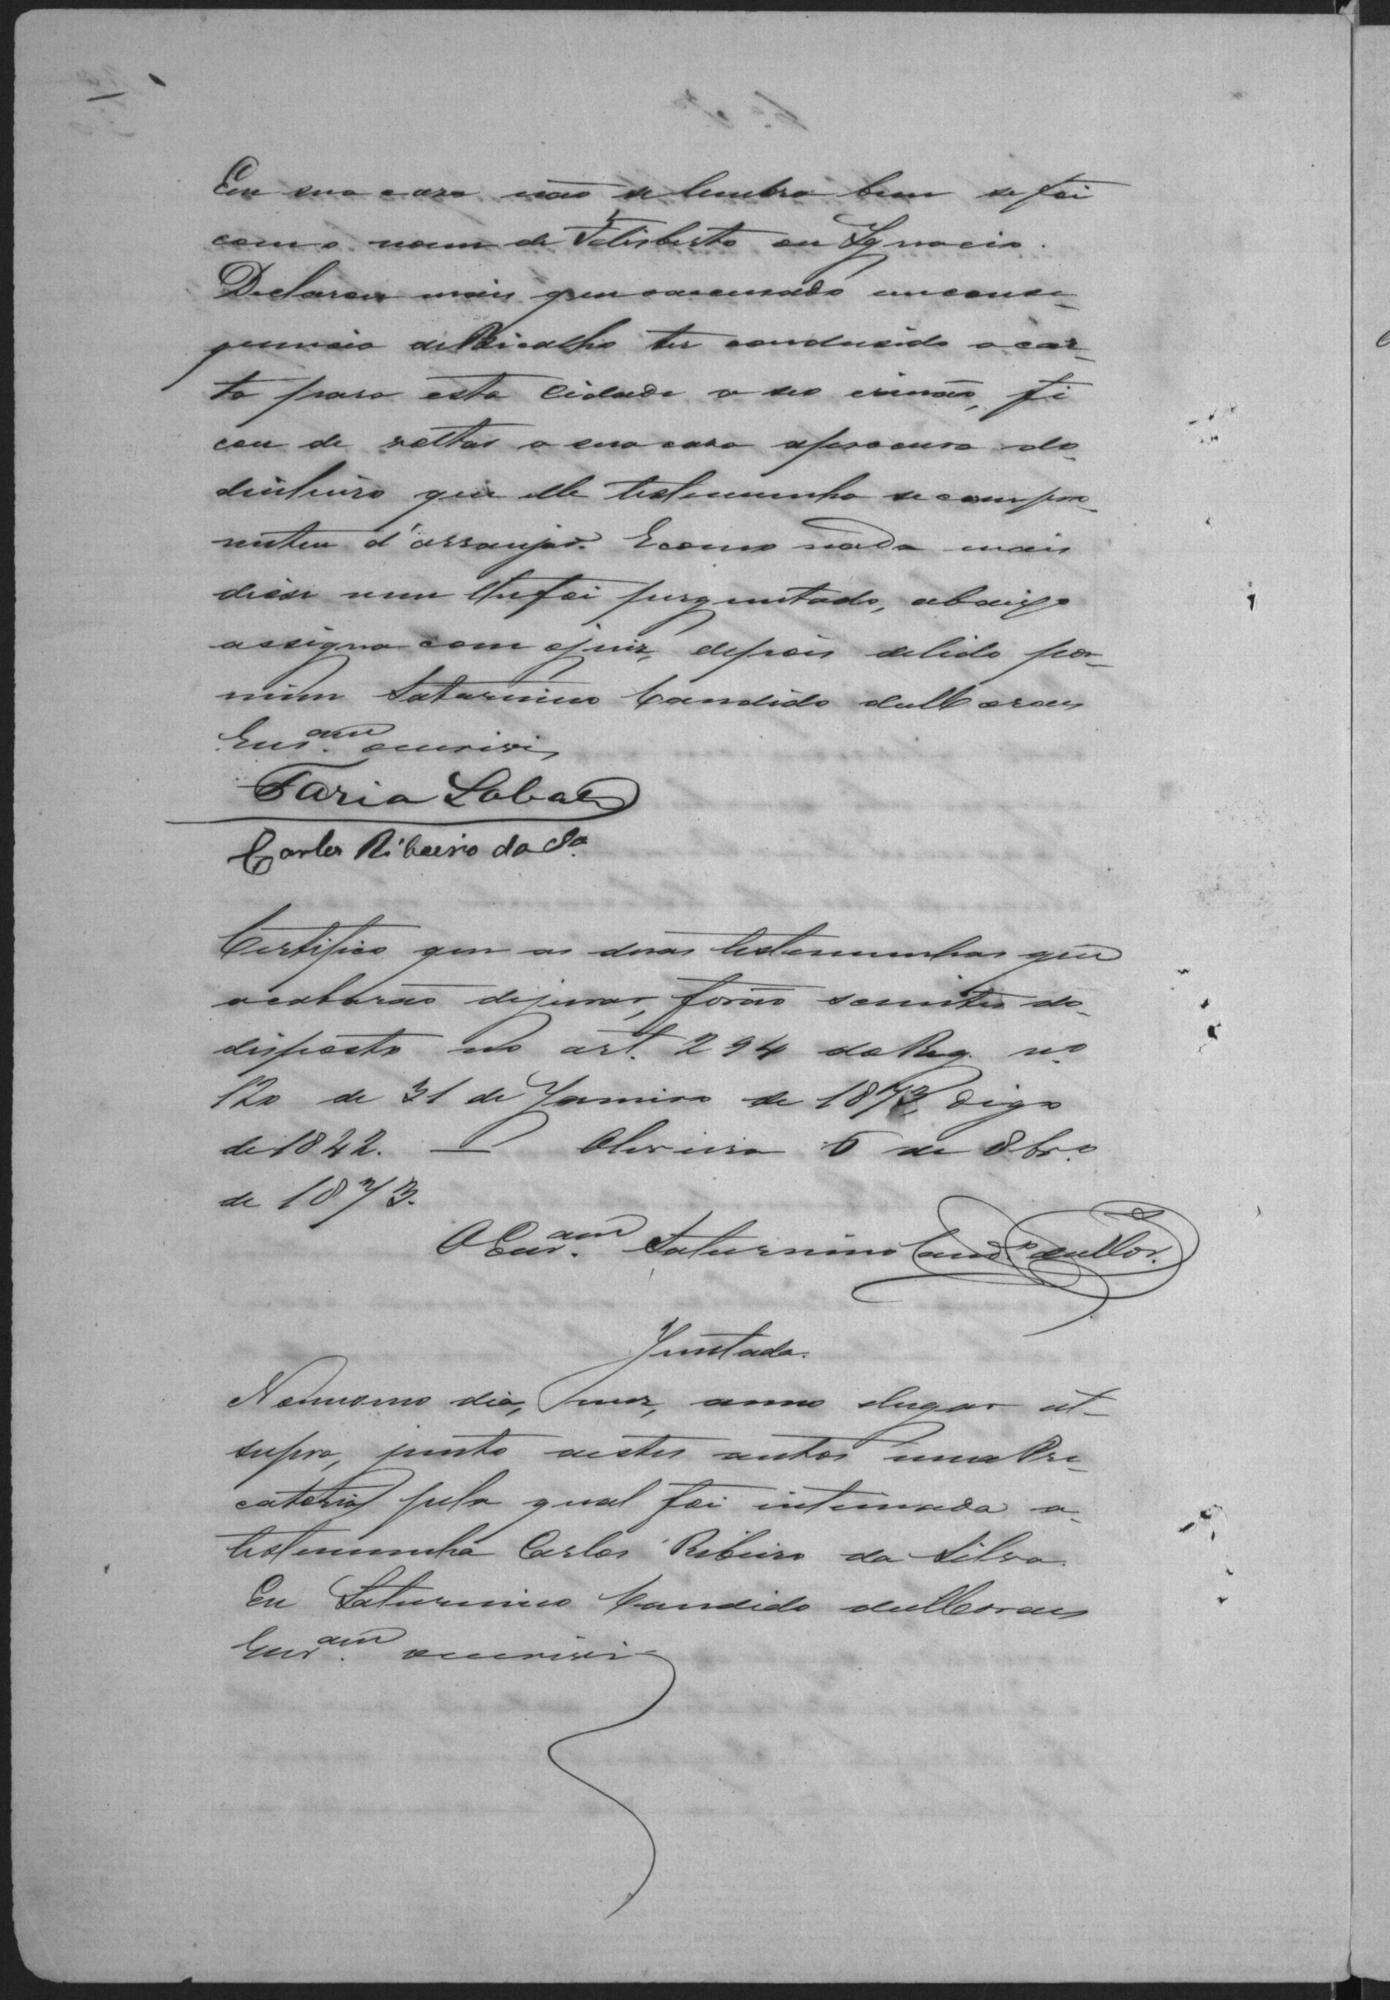 Em sua casa não se lembra bem se foi
com o nome de Felisberto ou Ignacio.
Declarou mais que o accusado em conse-
quencia de Bicalho ter conduzido a car-
ta para esta Cidade a seo irmão, fi
cou de voltar a sua casa a procura do
dinheiro que elle testemunha se compro-
metteu d'arranjar. E como nada mais
disse nem lhe foi perguntado, abaixo
assigna com o juiz, depois de lido por
mim Saturnino Candido de Moraes
Escr.am o escrivi,
Faria Lobato
Carlos Ribeiro da Sa
Certifico que as duas testemunhas que
acabarão de jurar, forão scientes do
disposto no art. 294 do Reg. no
120 de 31 de Janeiro de 1873, digo
de 1842. — Oliveira 6 de 8br.o
de 1873.
O Escr.am Saturnino Cand.o de Mor.
Juntada.
No mesmo dia, mez, anno e lugar ut-
supra, junto a estes autos uma Pre-
catoria pela qual foi intimada a
testemunha Carlos Ribeiro da Silva.
Eu Saturnino Candido de Moraes
Escr.am o escrivi